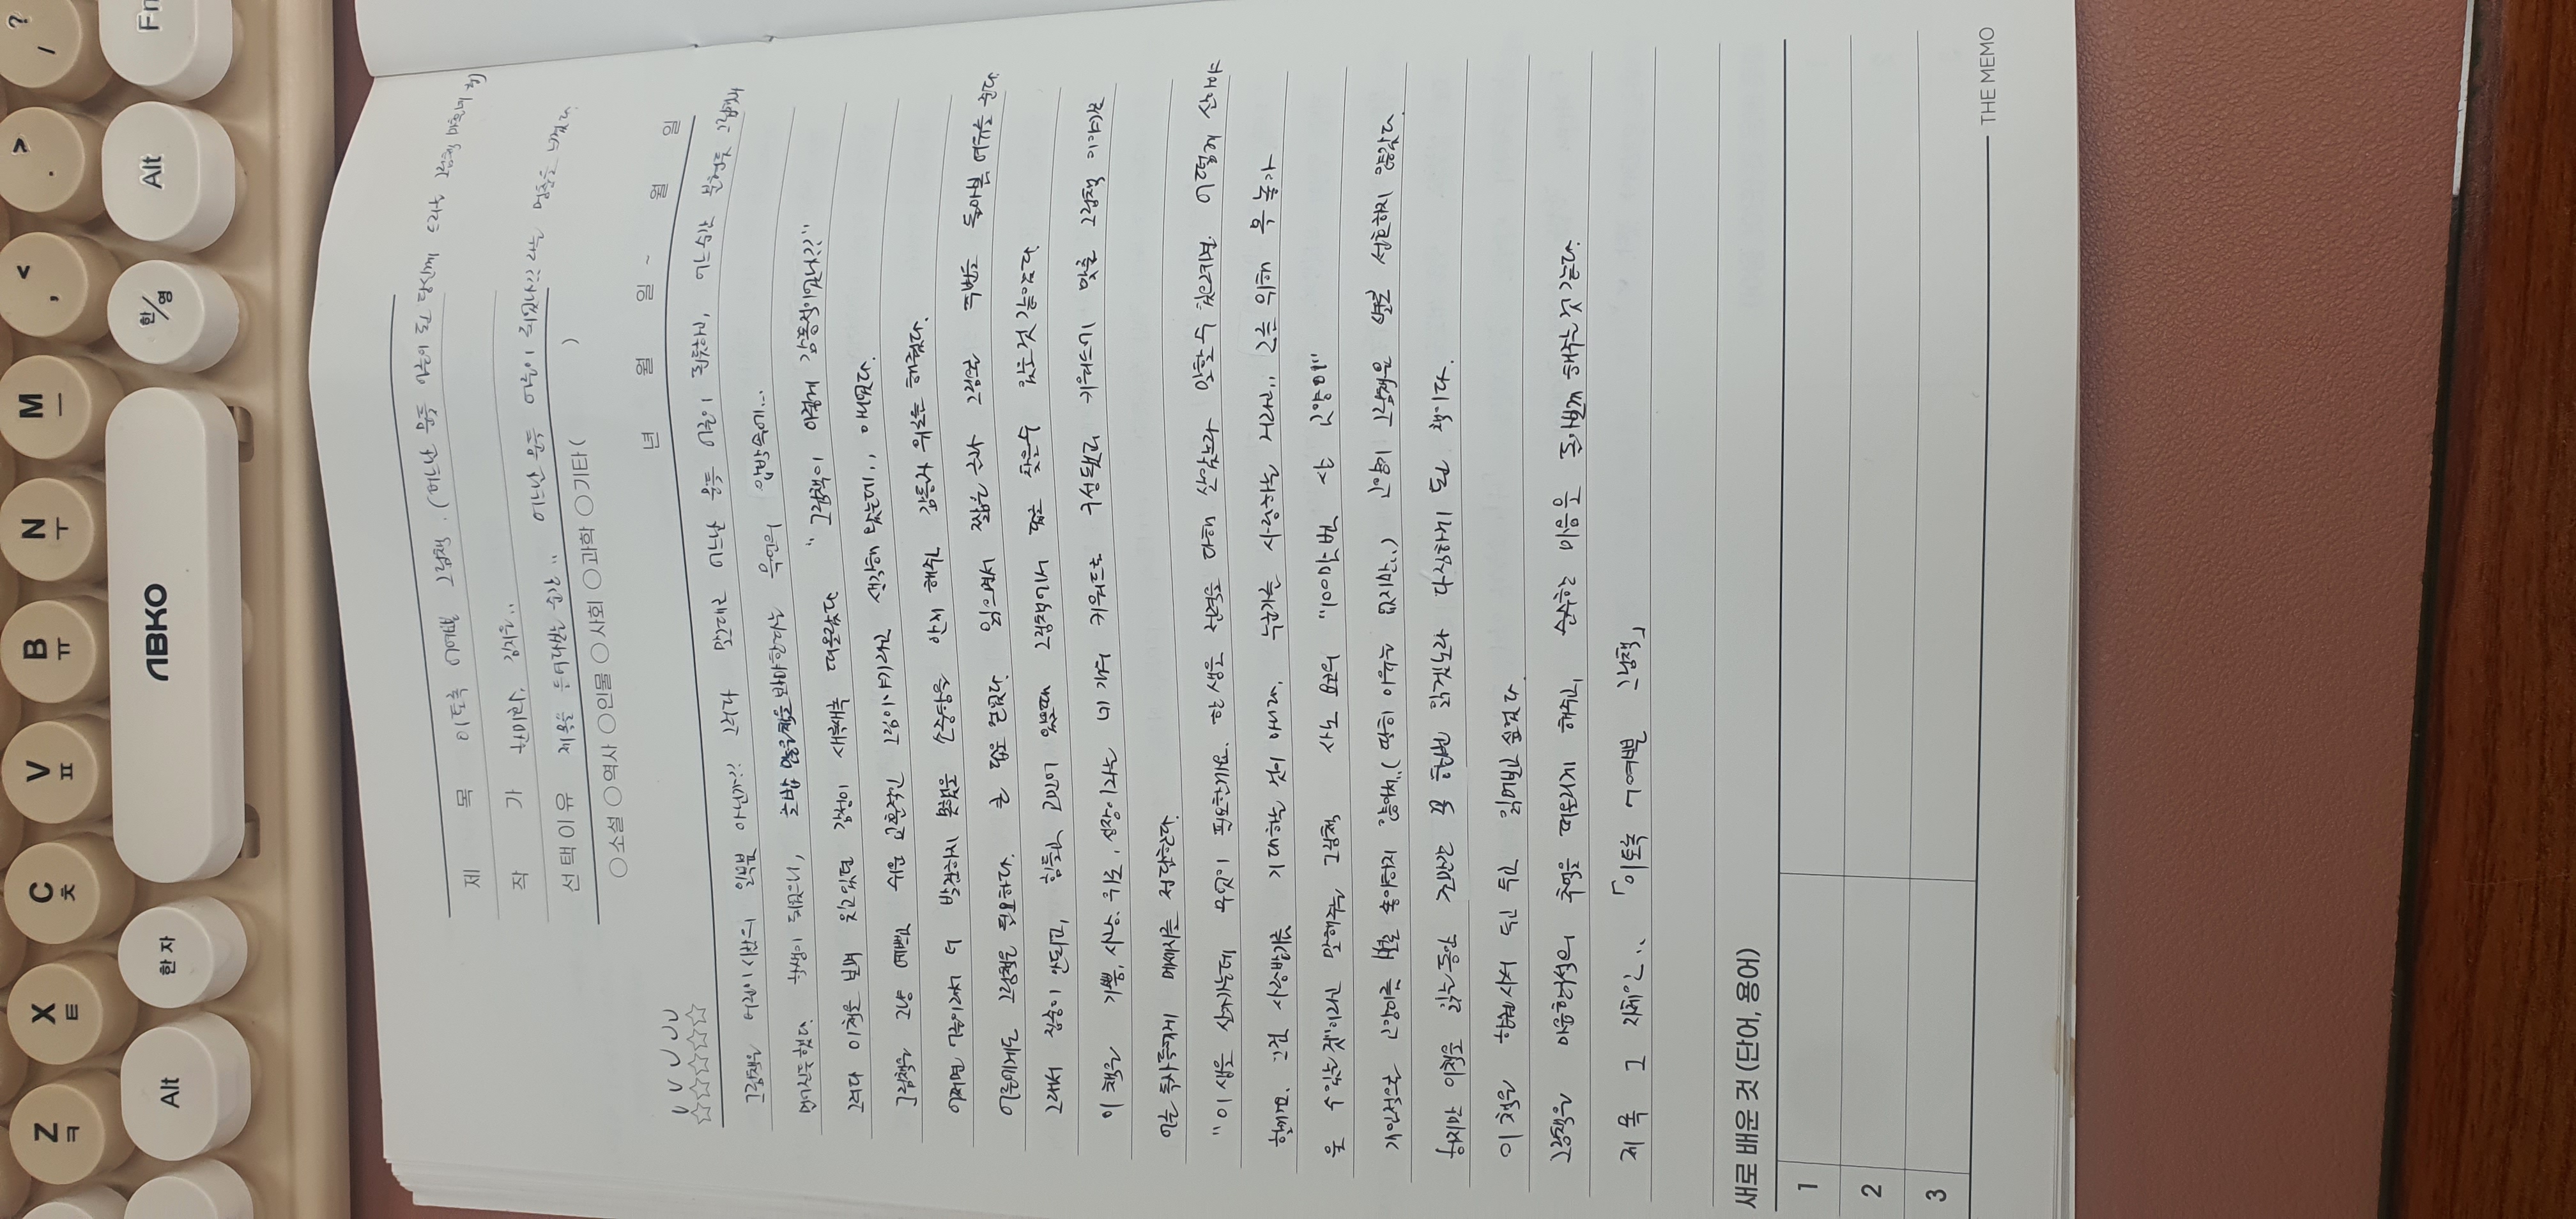 Z ㅋ X ㅌ C ㅊ V ㅍ B ㅠ N ㅜ M ㅡ < , > . ? /
Alt 한자 ABKO 한/영 Alt Fn
제 목 이토록 어여쁜 그림책. (어느날 문득 어른이 된 당신께 드리는 그림책 마흔네 권)
작 가 한미화, 김지은..
선택이유 제목을 들여다보는 순간.. 어느날 문득 어른이 되었나?? 라는 멈춤을 느꼈다.
○소설 ○역사 ○인물 ○사회 ○과학 ○기타 ( )
년 월 일 ~ 월 일
☆☆☆☆☆
그림책은 어린이 시절의 일부분 아닌가?? 그러다 말그대로 어느날 문득 어른이 된듯하고, 어느순간 그림책과
멀어진듯했다. 학생이 되었으니, 책을 봐야한다는 무언의 압박속에...
그러다 이책을 보며 잊고있던 감정이 새록새록 떠올랐다. "그림책이 이렇게 감동적이었나??"
그림책은 그냥 예쁘고 쉬운 교훈적인 그림이야기라고 생각해 왔는데.. 아니었다.
어쩌면 어른이라서 더 발견하지 못했을 소중함을 해주고 감동과 위로를 해줬다.
어른에게도 그림책은 필요하다. 큰 답을 얻었다. 읽으면서 짧은 글과 그림으로 주변을 돌아볼 여유를 준다.
그래서 집중이 안되고, 힘들고 고민이 있을때 그림책에서 답을 찾을수 있을것 같았다.
이 책은 기쁨, 사랑, 위로, 성장이라는 네 개의 키워드로 구성됐고 키워드에 맞춘 그림책 이야기로
어른 독자들에게 메세지를 전달한다.
"이 생을 살아가는데 무엇이 필요한가요. 한 생을 전력을 다해 살았노라 말할 수 있으려면. 어떻게 살아야
할까요. 그건 사랑받기를 기대하는 것이 아니라, 누군가를 사랑하는 거라고.. 그를 위해 목 놓아
울 수있는것"이라고 말해주는 그림책 사노 요코의 "100만 번 산 고양이"
개인적으로 고양이를 별로 좋아하지 않아서..(딱히 이유는 없지만..) 고양이 그림책은 별로 선호하지 않았다.
하지만 이책을 읽는동안 조만간 꼭 한번 읽겠노라 다짐하게 된 책이다.
이 책은 사서 두고 두고 읽어보고 싶었다.
그림책은 마음한구석의 추억을 떠올리게 해주고, 순수한 마음을 돌아보게 해주는것 같다.
제목 그 자체인.. 「이토록 어여쁜 그림책」
새로 배운 것 (단어, 용어)
1
2
3
THE MEMO